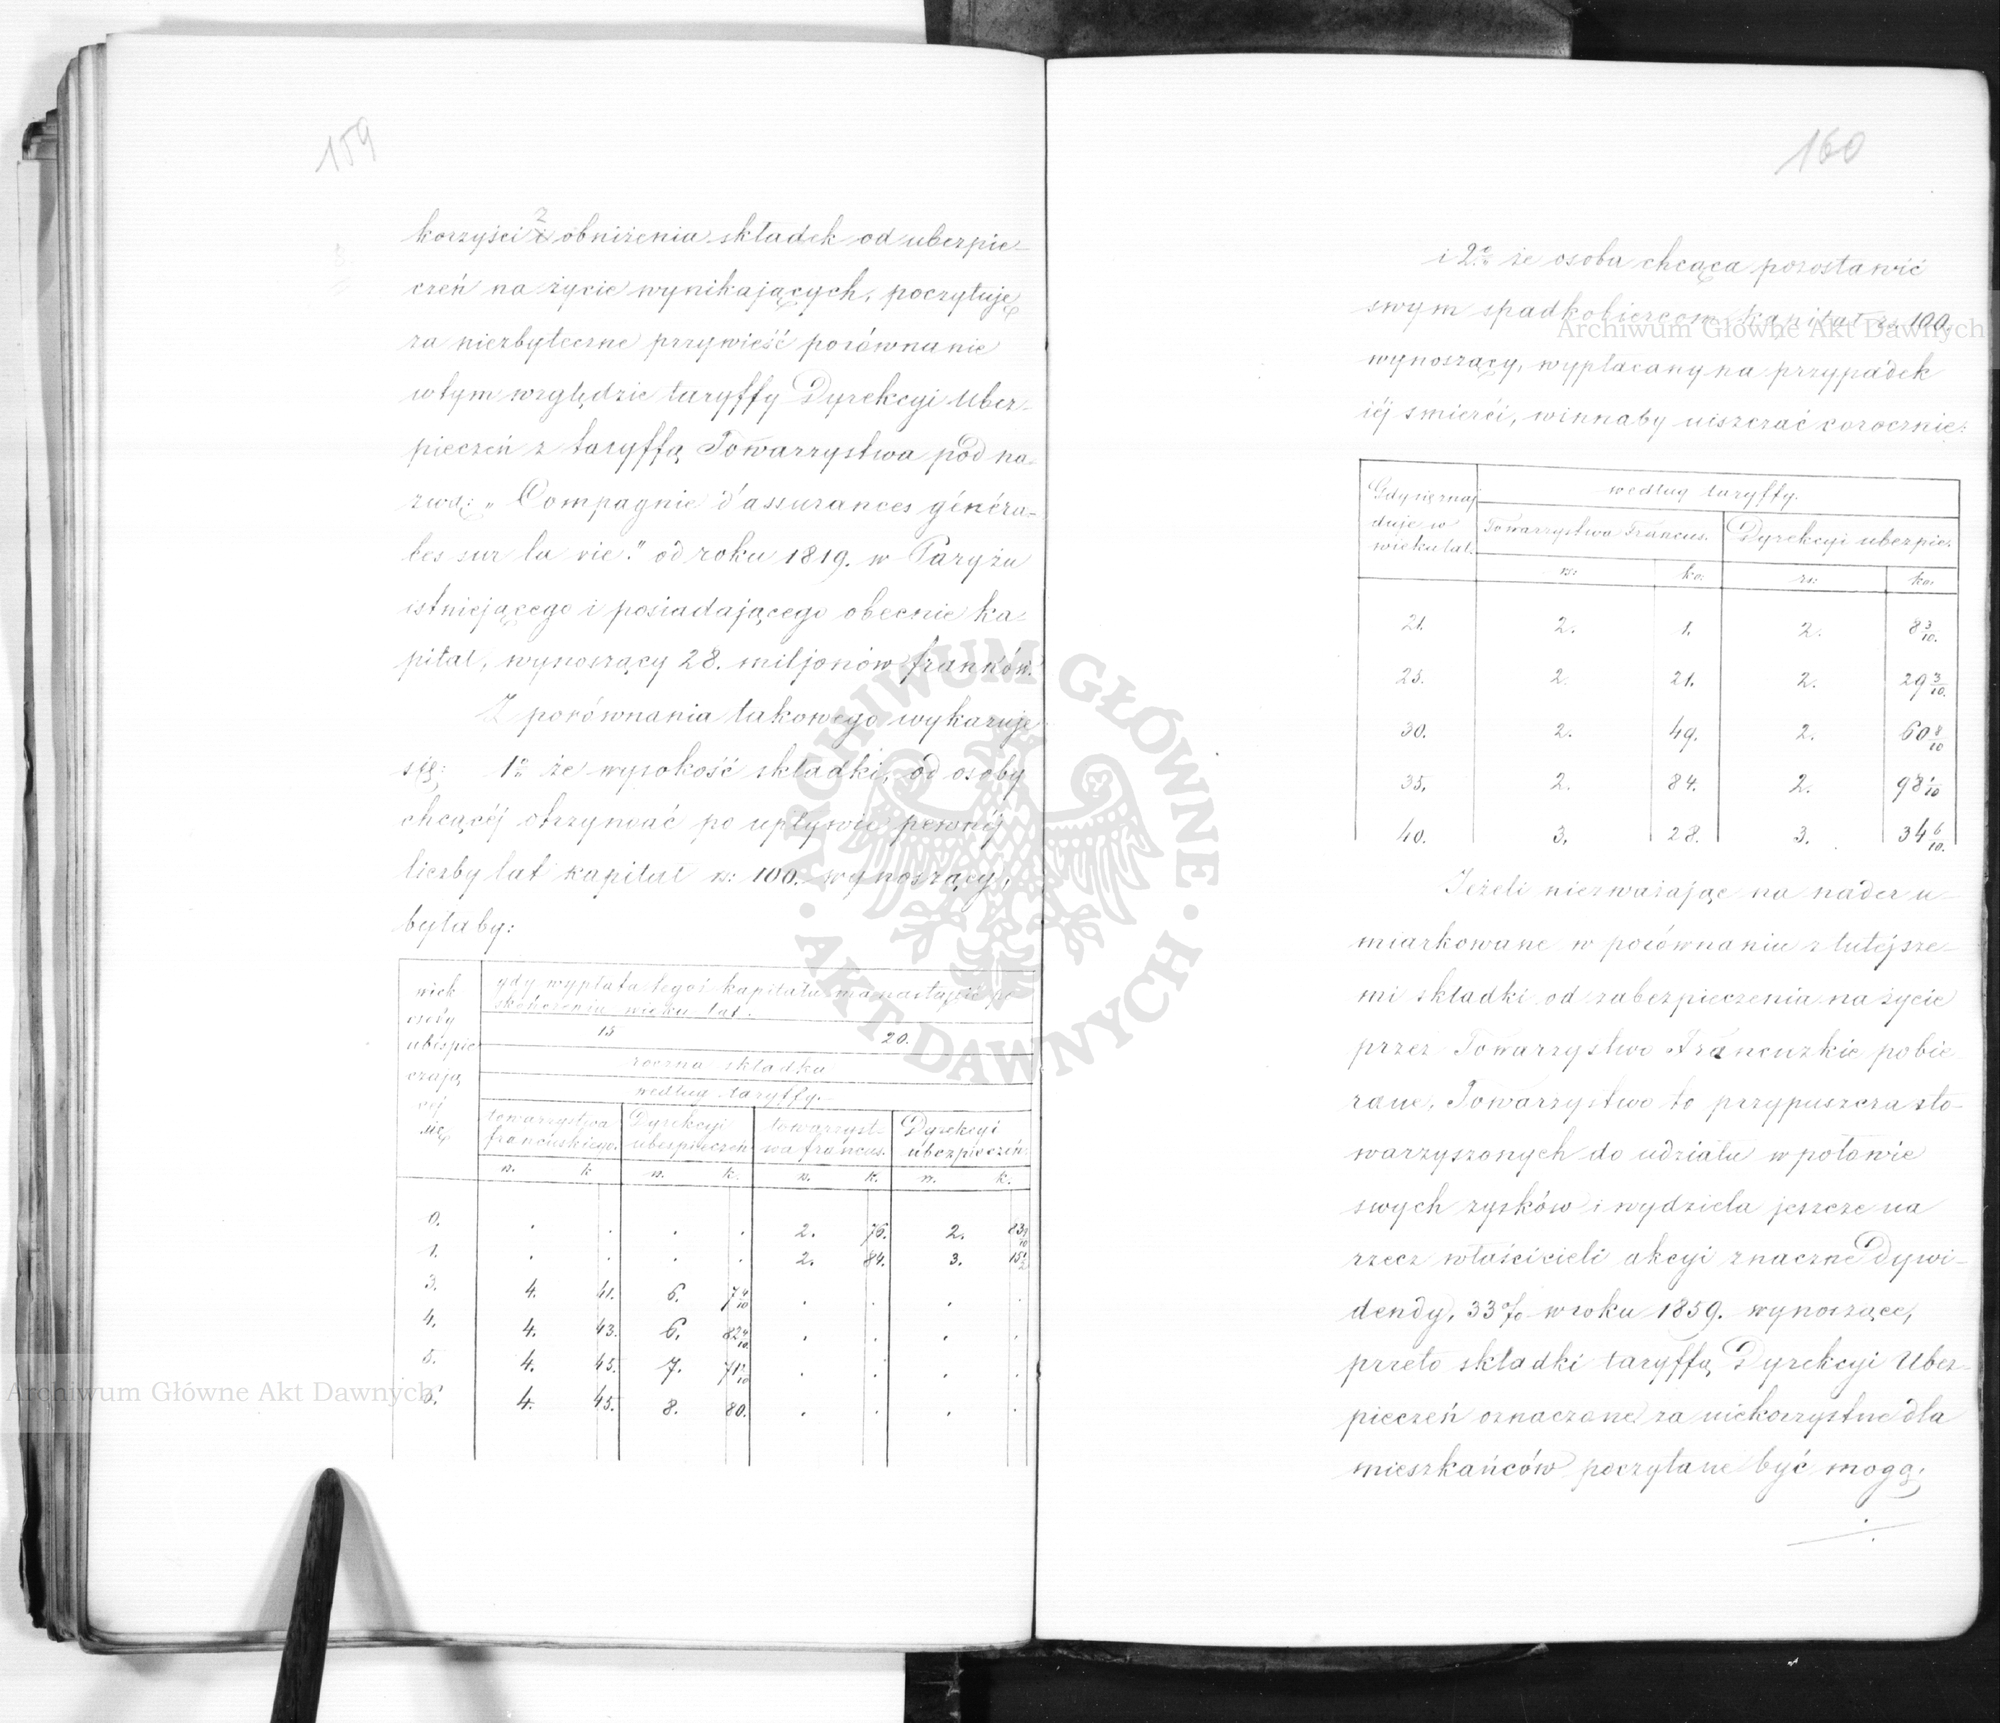 159
korzyści z obniżenia składek od ubezpie-
czeń na życie wynikających, poczytuję
za niezbyteczne przywieść porównanie
w tym względzie taryffy Dyrekcyi Uber-
pieczeń z taryffą Towarzystwa pod na-
zwą: „Compagnie d'assurances généra-
les sur la vie." od roku 1819. w Paryżu
istniejącego i posiadającego obecnie ka-
pitał, wynoszący 28. miljonów franków.
Z porównania takowego wykazuje
się: 1o że wysokość składki, od osoby
chcącéj otrzymać po upływie pewnéj
liczby lat kapitał rs: 100. wynoszący,
byłaby:
wiek osoby ubezpieczającéj się
gdy wypłata tegoż kapitału ma nastąpić po
skończeniu wieku lat.
15 20.
roczna składka
według taryffy.
towarzystwa francuskiego. Dyrekcyi ubezpieczeń towarzyst-wa francus. Dyrekcyi ubezpieczeń:
rs. k. rs. k. rs. k. rs. k.
0. . . . . 2. 76. 2. 83 9/10
1. . . . . 2. 84. 3. 15 1/2
3. 4. 41. 6. 7 4/10 . . . .
4. 4. 43. 6. 82 4/10. . . . .
5. 4. 45. 7. 71 1/10 . . . .
6. 4. 45. 8. 80. . . . .
160
i 2o że osoba chcąca pozostawić
swym spadkobiercom kapitał rs. 100.
wynoszący, wypłacany na przypadek
iéj smierći, winnaby uiszczać corocznie:
Gdy się znajduje w wieku lat.
według taryffy.
Towarzystwa Francus. Dyrekcyi ubezpie.
rs: ko: rs: ko:
21. 2. 1. 2. 8 3/10.
25. 2. 21. 2. 29 3/10.
30. 2. 49. 2. 60 8/10
35. 2. 84. 2. 98 1/10
40. 3. 28. 3. 34 6/10.
Jeżeli niezważając na nader u-
miarkowane w porównaniu z tutejsze-
mi składki od zabezpieczenia na życie
przez Towarzystwo Francuzkie pobie-
rane, Towarzystwo to przypuszcza sto-
warzyszonych do udziału w połowie
swych zysków i wydziela jeszcze na
rzecz właścicieli akcyi znaczne Dywi-
dendy, 33% w roku 1859. wynoszące,
przeto składki taryffą Dyrekcyi Uber-
pieczeń oznaczone za niekorzystne dla
mieszkańców poczytane być mogą;
Archiwum Główne Akt Dawnych
Archiwum Główne Akt Dawnych
ARCHIWUM GŁÓWNE AKT DAWNYCH